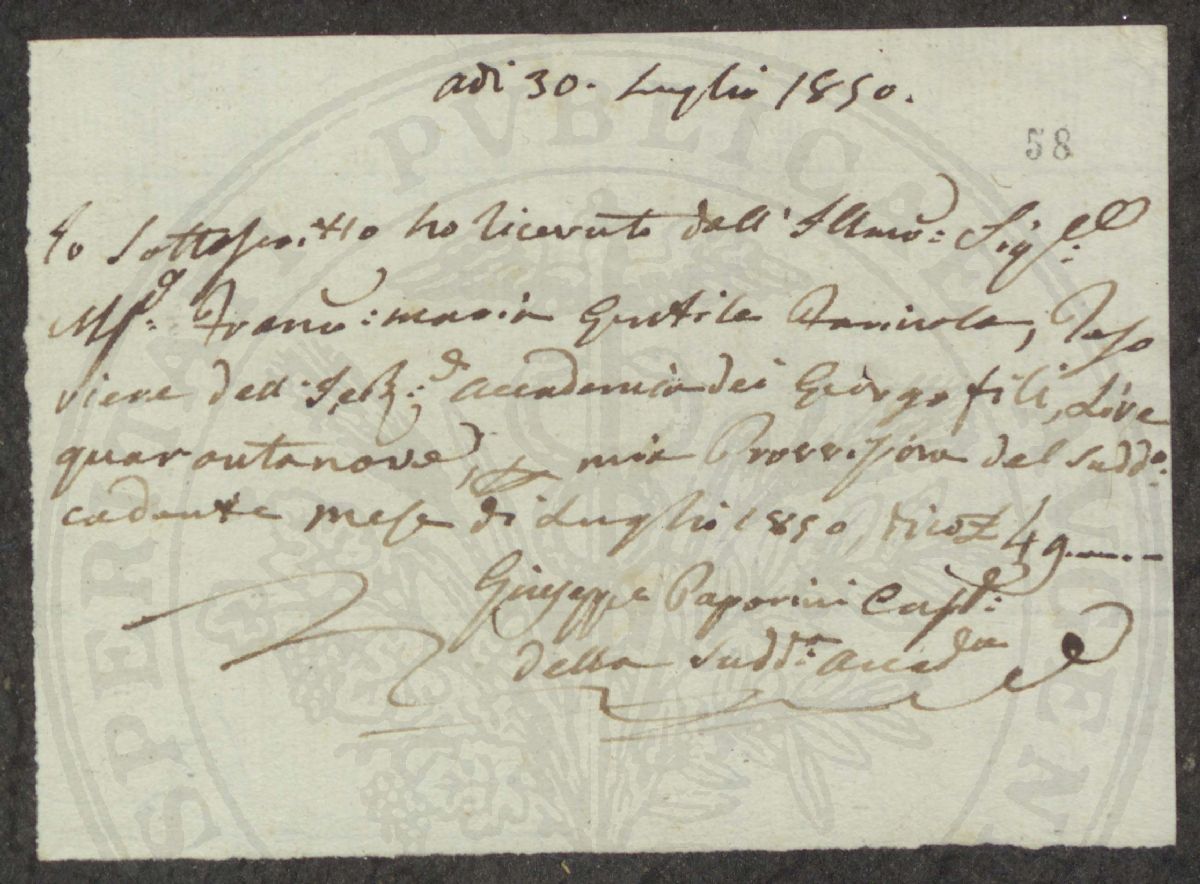 adì 30. Luglio 1850.
58
Io Sottoscritto ho ricevuto dall' Illmo: Sigre:
Franco: maria Gentile Farinola, Teso
riere dell: I. e R.: Accademia dei Georgofili, Lire
quarantanove, mia Provvisione del Sudd.o:
cadente mese di Luglio 1850, dico £ 49.....-
Giuseppe Paporini Custde:
della Sudd.a: Accadia
PUBLICAE
PROSPERITATI